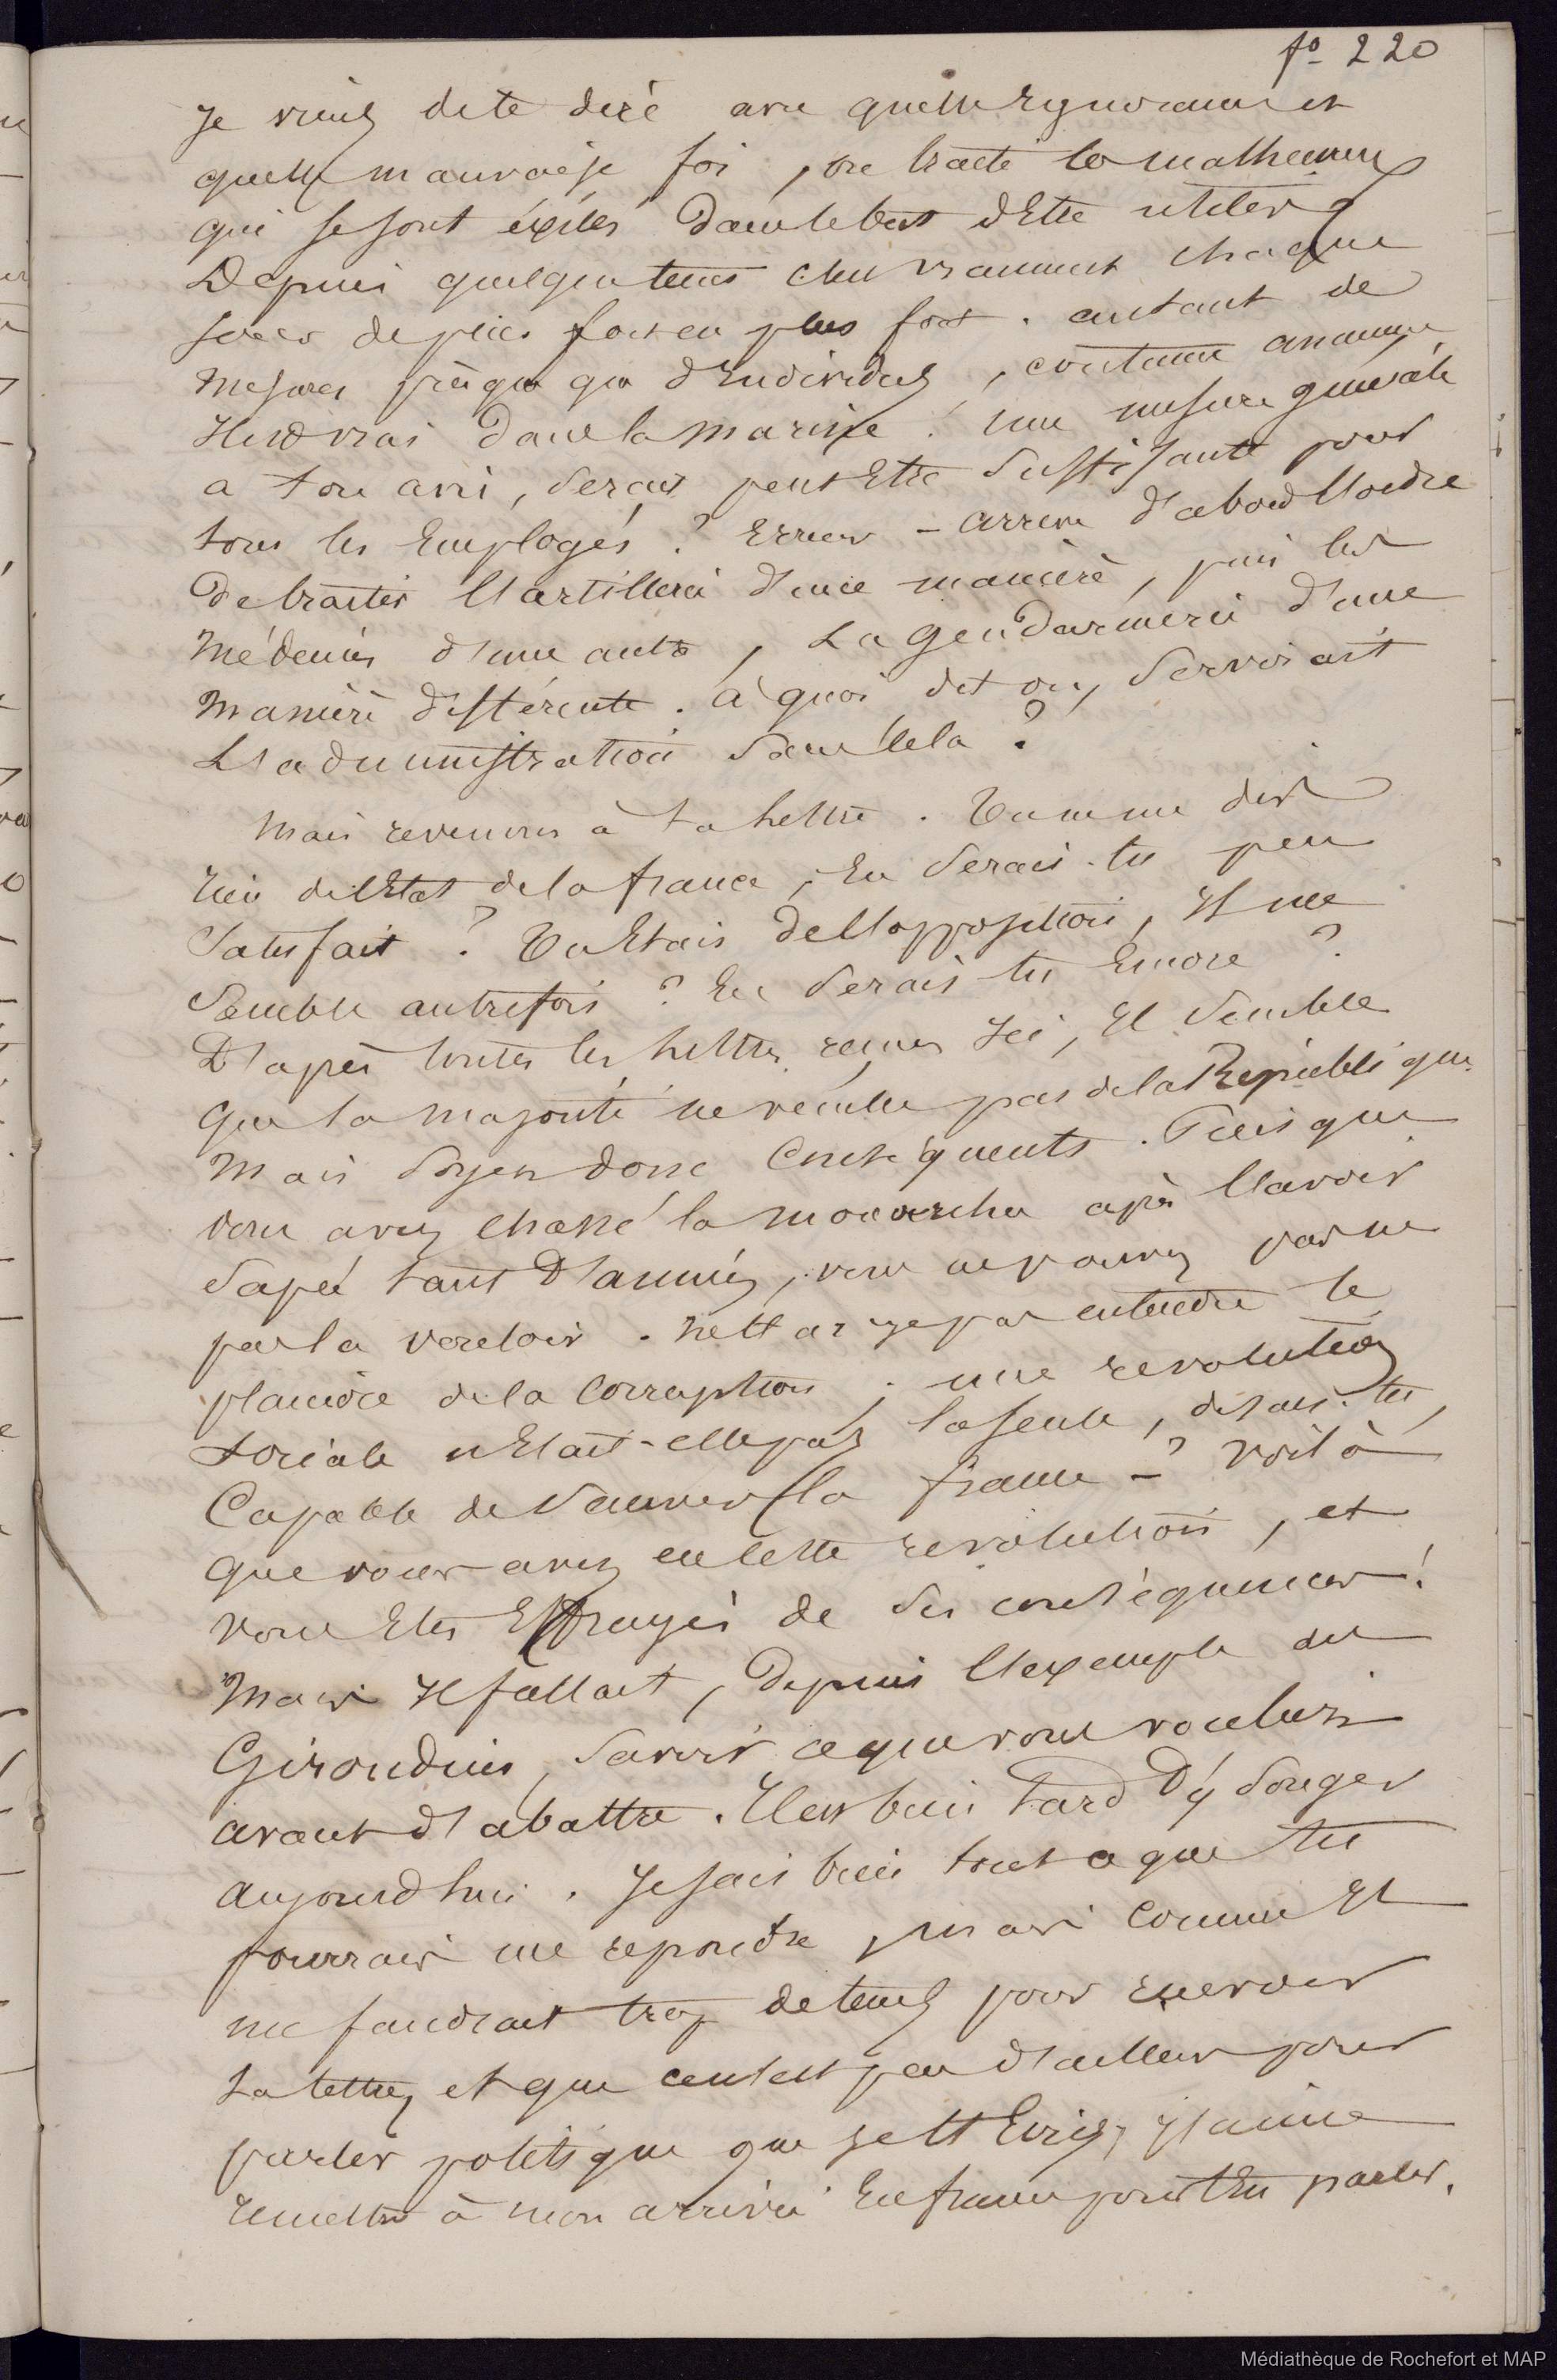 fo 220
Je viens de te dire avec quelle Ignorance et
quelle mauvaise foi, on traite les malheureux
qui se sont éxilés Dans le but d'Etre utiles
Depuis quelque tems c'est vraiment chaque
jour de plus fort en plus fort. autant de
mesures presque que d'Individus, coutume
Il est vrai Dans la marine. une mesure générale
a ton avis, serait peut Etre suffisante pour
tous les Employés ? Erreur - arrive d'abord l'ordre
De traiter l'artillerie d'une manière, puis les
Médecins d'une autre, La Gendarmerie d'une
Manière différente. à quoi dit on, Servirait
L'administration Sans cela ?
Mais revenons à ta lettre. Tu ne me dis
rien de l'Etat de la france, En Serais-tu peu
Satisfait ? Tu Etais de l'opposition, Il me
Semble autrefois ? En Serais tu Encore ?
D'après toutes les lettres reçues Ici, Il Semble
que la majorité ne veuille pas de la République
Mais Soyez donc Conséquents. Puisque
vous avez chassé la monarchie après l'avoir
Sapée tant D'années, vous ne pouvez pas ne
pas la vouloir. net'ai-je pas entendu te
plaindre de la Corruption ; une revolution
Sociale n'Etait-elle pas la seule, disais-tu,
Capable de Sauver la france - ? Voilà
que vous avez eu cette revolution, et
vous Etes Effrayés de Ses conséquences !
Mais Il fallait, Depuis l'exemple des
Girondins, Savoir ce que vous vouliez
avant d'abattre. Il est bien Tard D'y Songer
aujourd'hui. Je sais bien tout ce que tu
pourrais me repondre, mais comme Il
me faudrait trop de tems pour
ta lettre, et que ce n'est pas d'ailleurs pour
parler politique que je t'Ecris, j'aime
remettre à mon arrivée En france pour t'En parler.
Médiathèque de Rochefort et MAP